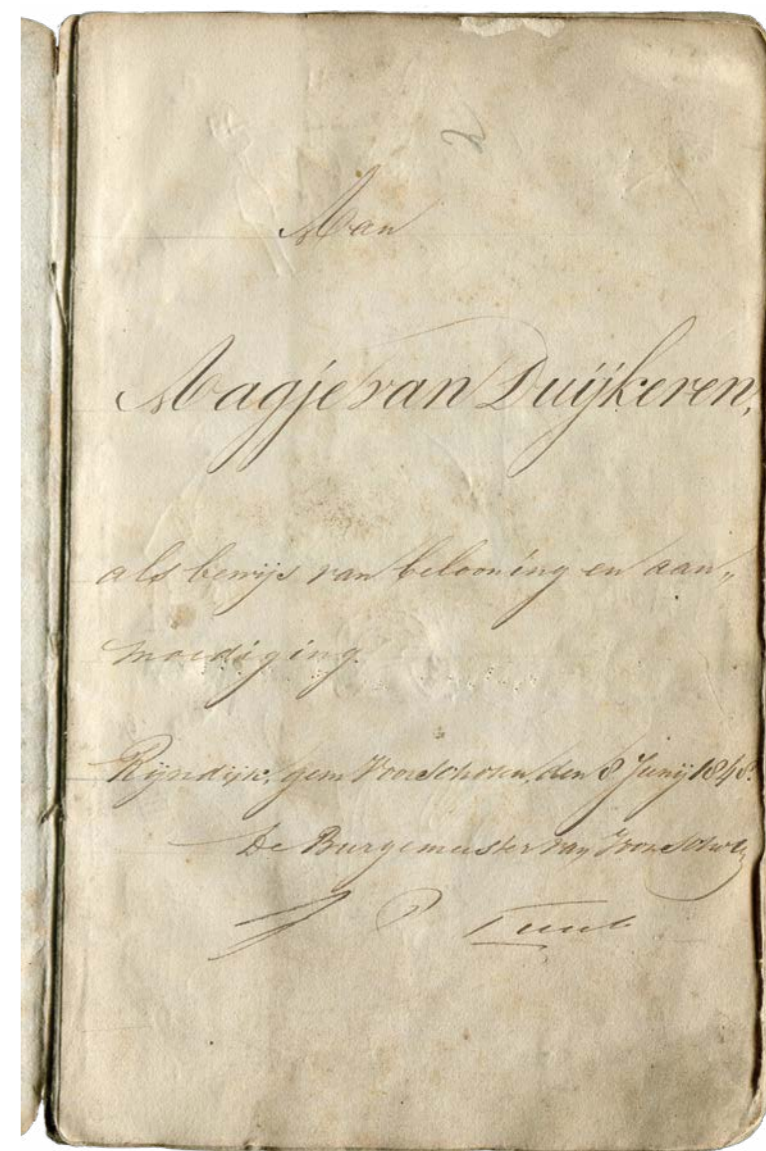 2
Aan
Aagje van Duijkeren,
als bewijs van belooning en aan„
moediging.
Rijndijk, gem Voorschoten, den 8 Junij 1848.
De Burgemeester van Voorschoten
J P